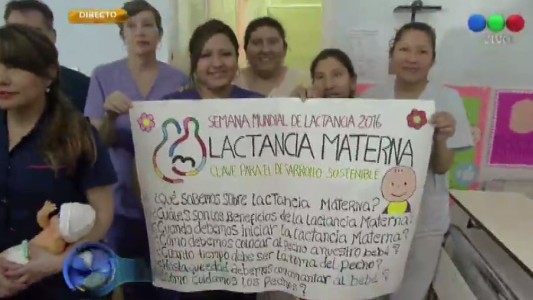 DIRECTO
SEMANA MUNDIAL DE LACTANCIA 2016
LACTANCIA MATERNA
CLAVE PARA EL DESARROLLO SOSTENIBLE
¿QUÉ SABEMOS SOBRE LACTANCIA MATERNA?
¿CUÁLES SON LOS BENEFICIOS DE LA LACTANCIA MATERNA
¿CUANDO DEBEMOS INICIAR LA LACTANCIA MATERNA?
¿CÓMO DEBEMOS COLOCAR AL PECHO A NUESTRO BEBÉ?
¿CUANTO TIEMPO DEBE SER LA TOMA DEL PECHO?
¿HASTA QUE EDAD DEBEMOS AMAMANTAR AL BEBÉ?
¿CÓMO CUIDAMOS LOS PECHOS?